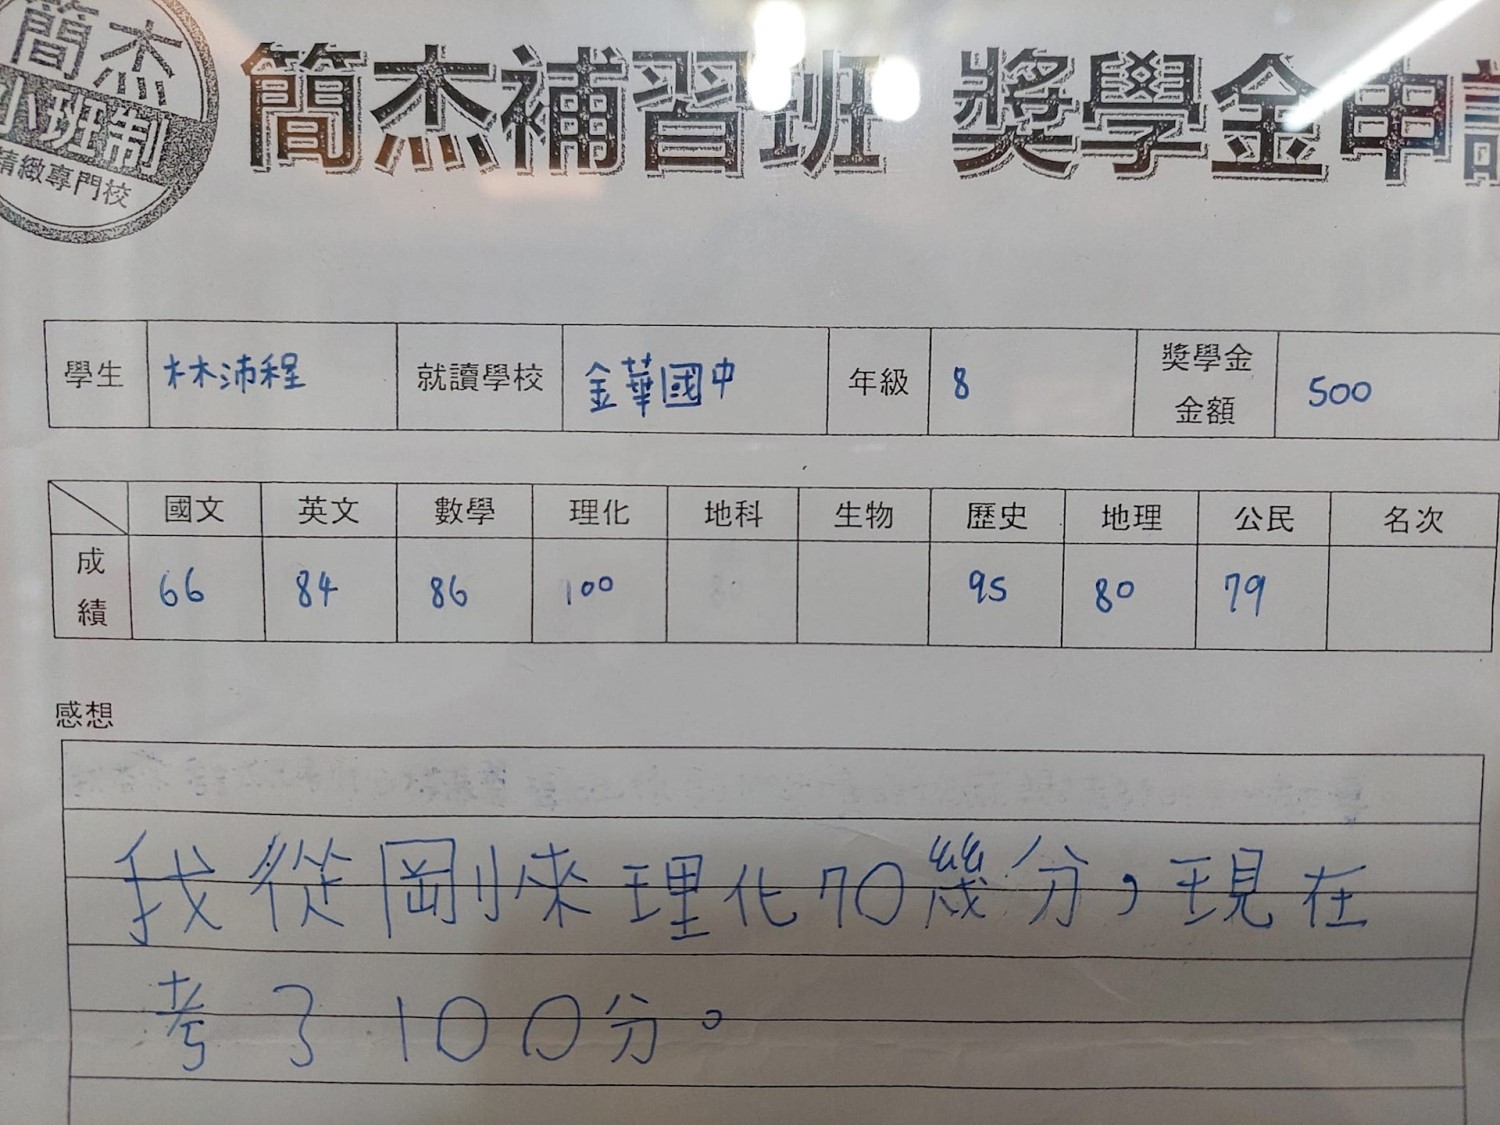 簡杰
小班制
精緻專門校
簡杰補習班 獎學金申
學生 林沛程 就讀學校 金華國中 年級 8 獎學金金額 500
國文 英文 數學 理化 地科 生物 歷史 地理 公民 名次
成績 66 84 86 100 95 80 79
感想
我從剛來理化70幾分，現在
考了100分。